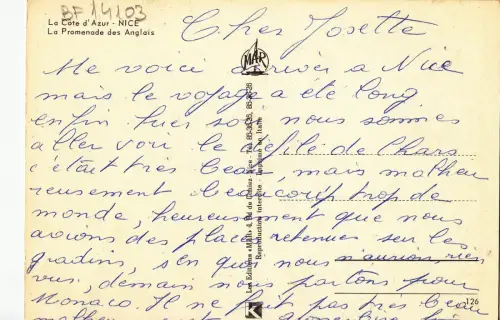 BF 14103
La Côte d'Azur - NICE
La Promenade des Anglais
Cher Josette
MAR
Me voici arrivée a Nice
mais le voyage a été long
enfin hier soir nous sommes
aller voir le défilé de Chars
c'était très beau, mais malheu
reusement beaucoup trop de
monde, heureusement que nous
avions des places retenues sur les
gradins, s'en quoi nous n'aurions rien
vus, demain nous partons pour
Monaco. Il ne fait pas très beau
Les Editions «MAR»
Reproduction interdite - Imprimé en Italie
K
126